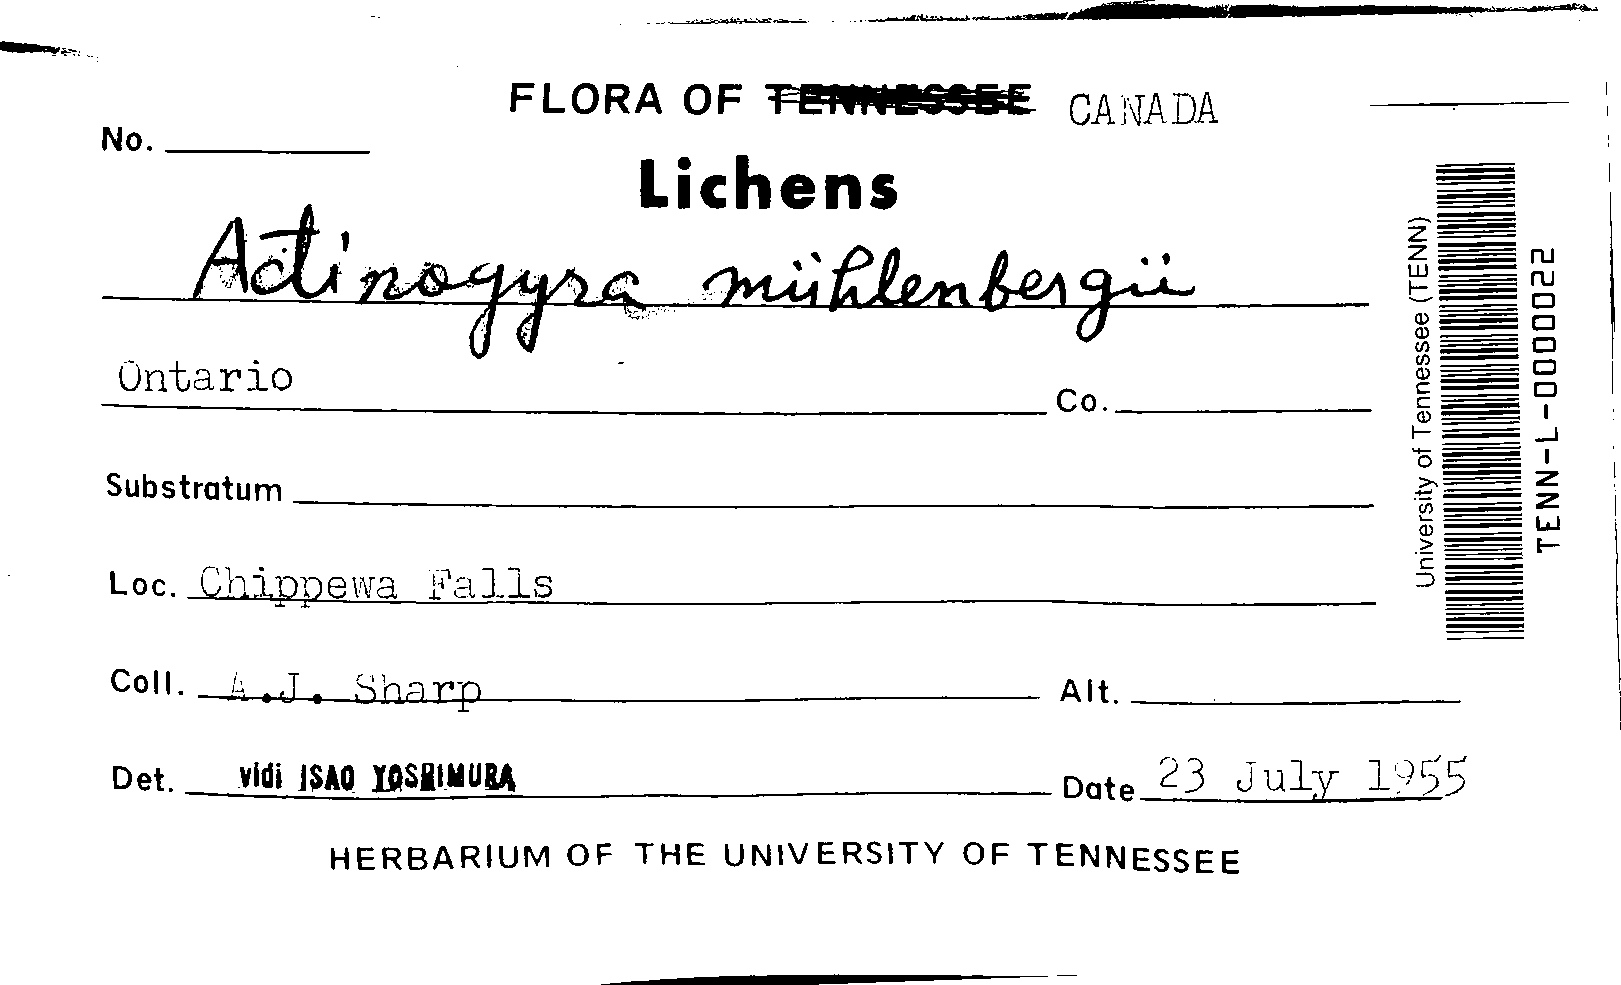 FLORA OF TENNESSEE CANADA
No.
Lichens
Actinogyra mühlenbergii
Ontario
Co.
Substratum
Loc. Chippewa Falls
Coll. A.J. Sharp
Alt.
Det. vidi ISAO YOSHIMURA
Date 23 July 1955
HERBARIUM OF THE UNIVERSITY OF TENNESSEE
University of Tennessee (TENN)
TENN-L-0000022